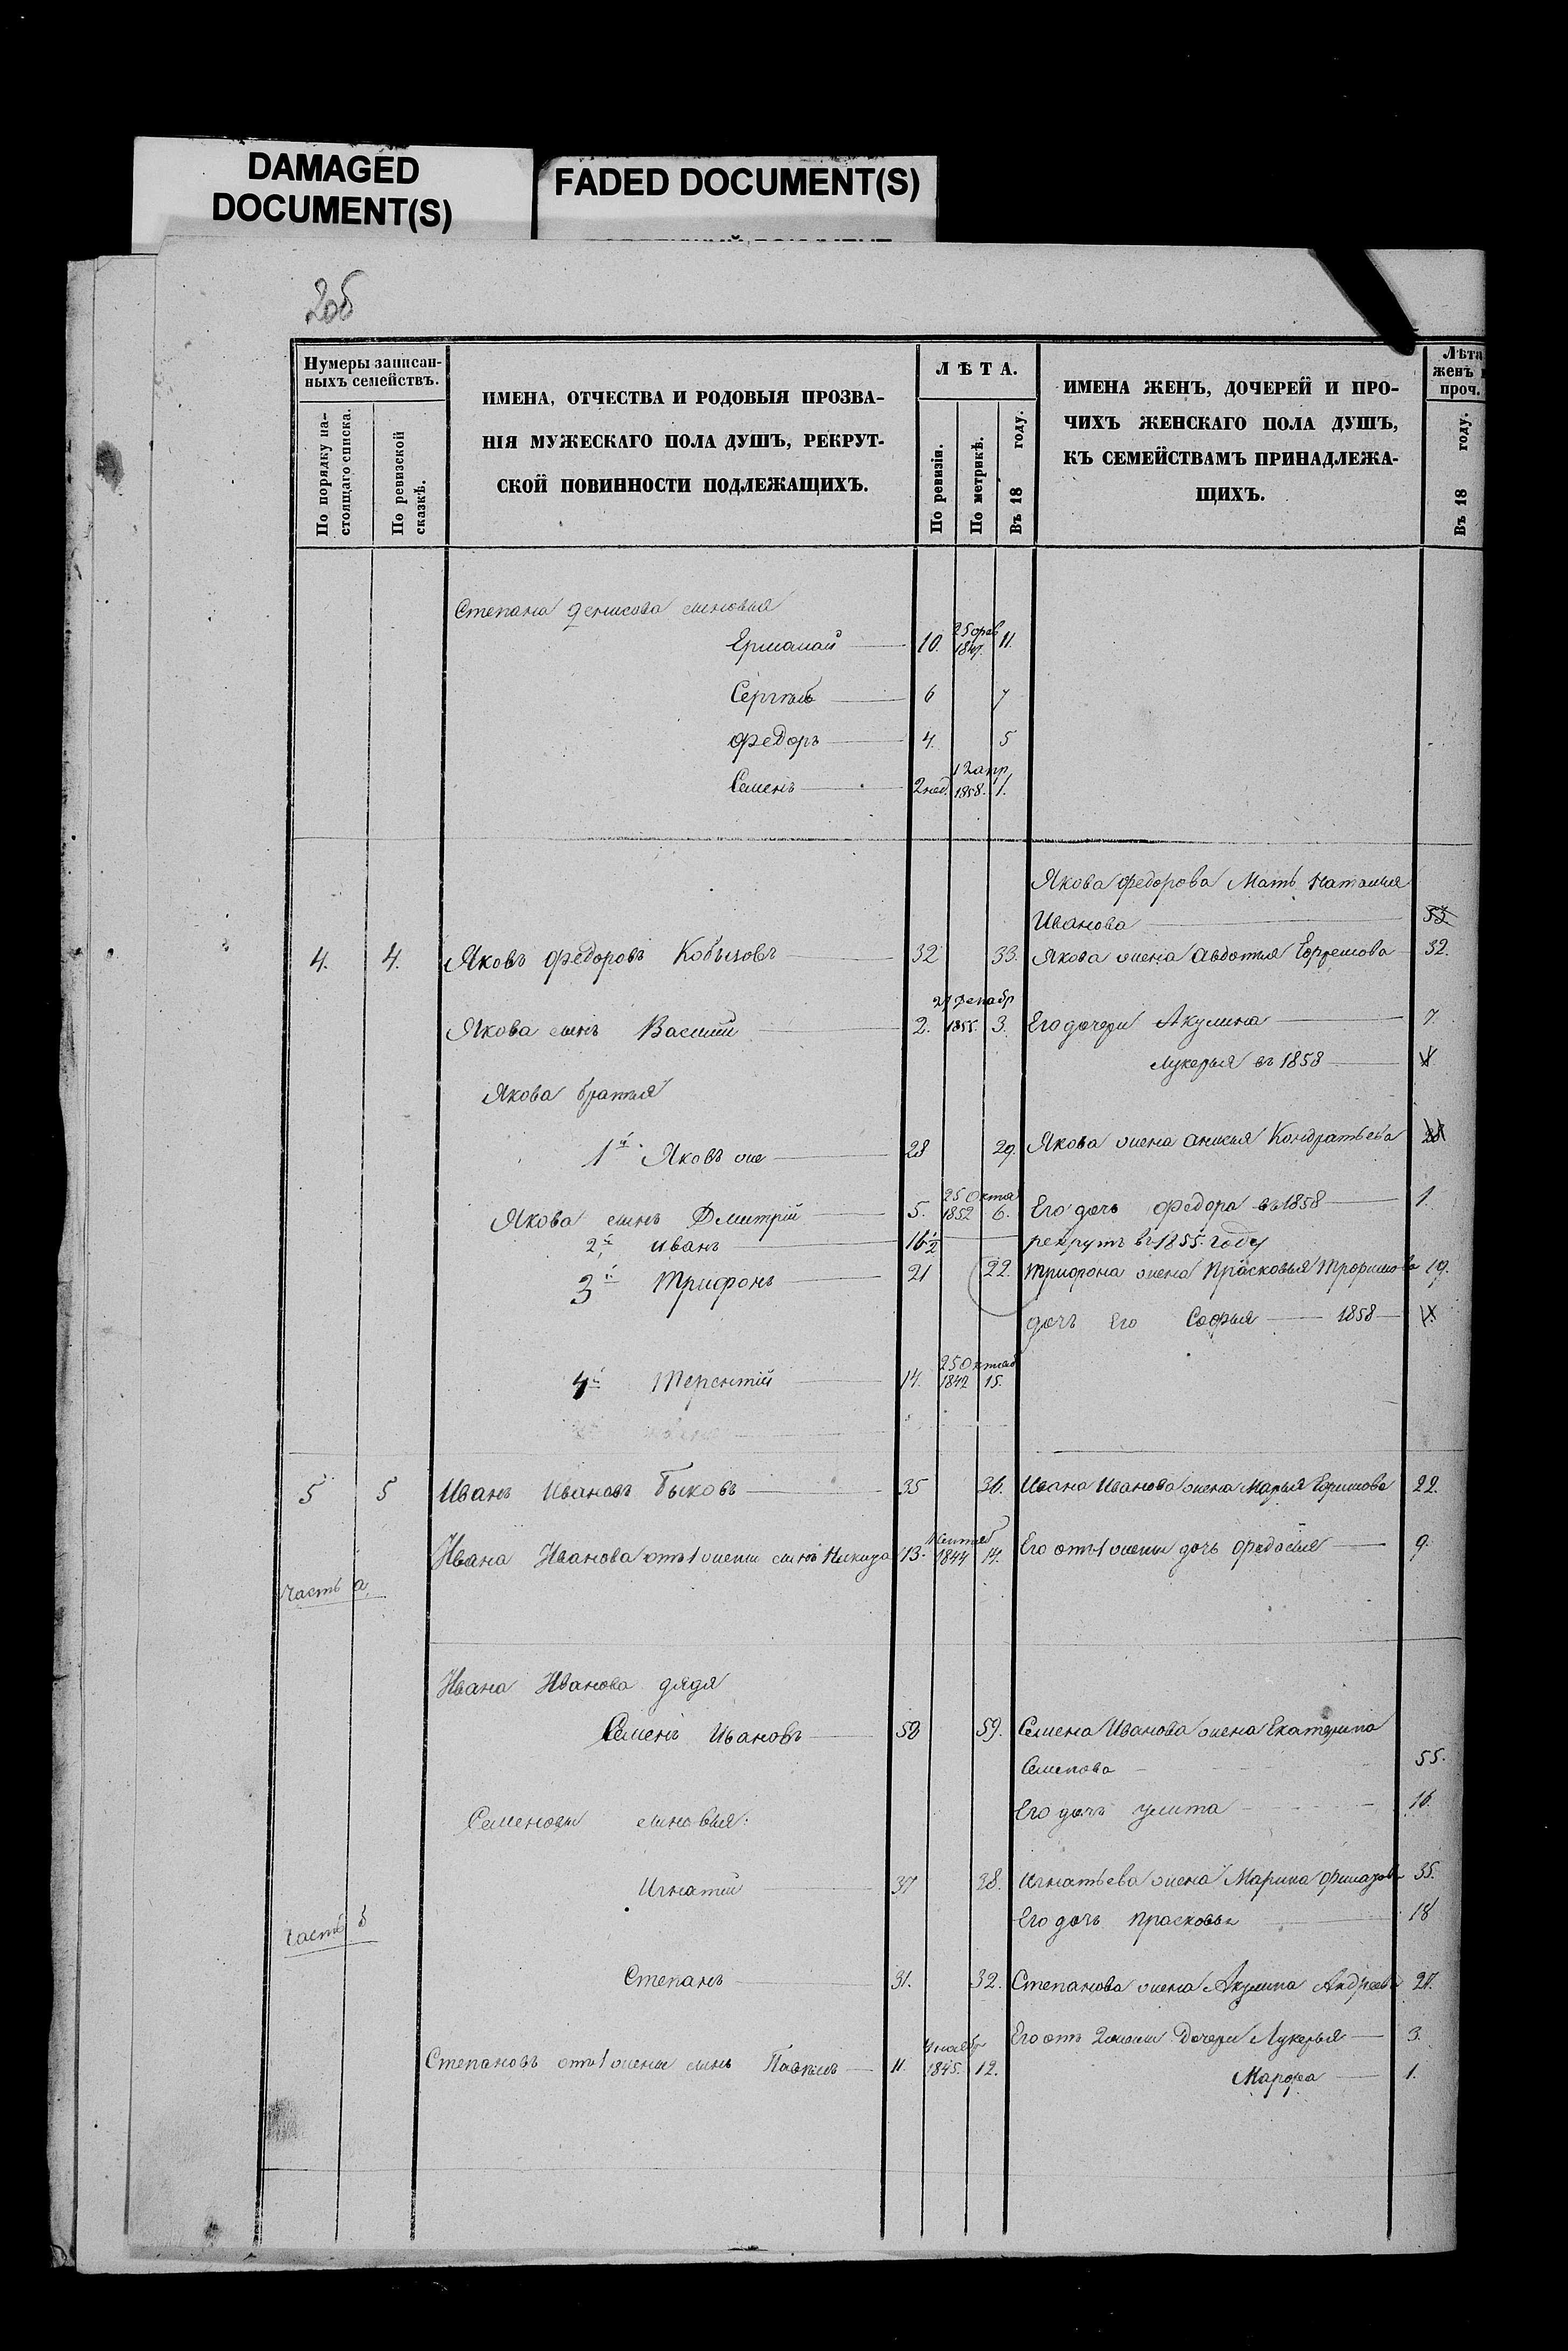 DAMAGED
DOCUMENT(S)
FADED DOCUMENT(S)
2об
Нумеры записан-
ныхъ семействъ.
По порядку на-
стоящаго списка.
По ревизской
сказкѣ.
ИМЕНА, ОТЧЕСТВА И РОДОВЫЯ ПРОЗВА-
НІЯ МУЖЕСКАГО ПОЛА ДУШЪ, РЕКРУТ-
СКОЙ ПОВИННОСТИ ПОДЛЕЖАЩИХЪ.
ЛѢТА.
По ревизіи.
По метрикѣ.
Въ 18 году.
ИМЕНА ЖЕНЪ, ДОЧЕРЕЙ И ПРО-
ЧИХЪ ЖЕНСКАГО ПОЛА ДУШЪ,
КЪ СЕМЕЙСТВАМЪ ПРИНАДЛЕЖА-
ЩИХЪ.
Лѣта
женъ
проч.
Въ 18 году.
Степана Денисова сыновья
Ермолай 10. 25 фев 1847. 11.
Сергѣй 6 7
Федоръ 4. 5
Семенъ 2 нед. 12 апр 1858. 1.
Якова Федорова Мать Наталья
Иванова 53.
4. 4. Яковъ Федоровъ Кобызовъ 32 33. Якова жена Авдотья Ефремова 32.
Якова сынъ Василій 2. 27 Декабр 1855. 3. Его дочери Акулина 7.
Лукерья въ 1858
Якова братья
1й Яковъ же 28 29. Якова жена Анисья Кондратьева 28
Якова сынъ Дмитрій 5. 25 Октя 1852 6. Его дочь Федора въ 1858 1.
2й Иванъ 16 1/2 рекрутъ въ 1855. году
3й Трифонъ 21 22. Трифона жена Прасковья Трофимова 19.
дочь Его Софья 1858
4й Терентій 14. 25 Октяб 1842 15.
5 5 Иванъ Ивановъ Быковъ 35 36. Ивана Иванова жена Марья Ефимова 22.
Ивана Иванова отъ 1 жены сынъ Никита 13. Сентяб 1844 14. Его отъ 1 жены дочь Федосья 9.
Часть а,
Ивана Иванова дядя
Семенъ Ивановъ 58 59. Семена Иванова жена Екатерина
Семенова 55.
Семеновы сыновья: Его дочь Улита 16.
Игнатій 37 38. Игнатьева жена Марина 35.
Его дочь Прасковья 18
Часть б
Степанъ 31. 32. Степанова жена Акулина Андреева 27.
Его отъ 2 жены Дочери Лукерья 3.
Степановъ отъ 1 жены сынъ Павелъ 11. 4 ноябр 1845. 12. Марфа 1.